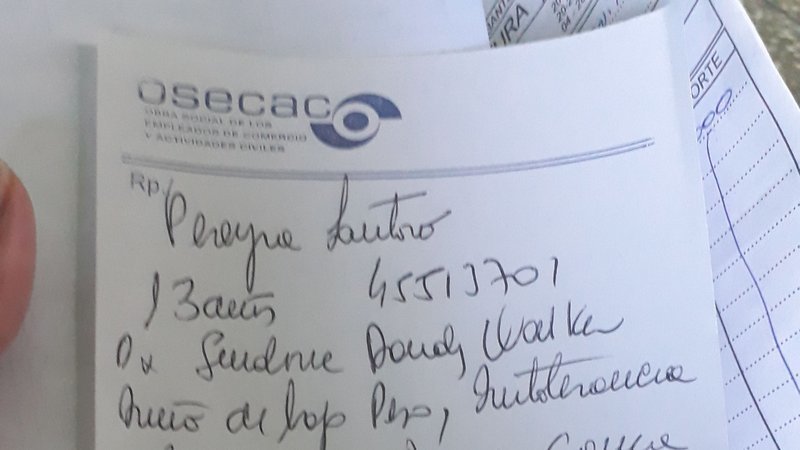 osecac
OBRA SOCIAL DE LOS
EMPLEADOS DE COMERCIO
Y ACTIVIDADES CIVILES
Rp/
Pereyra Lautaro
13 años 45513701
Dx Sindrome Dandy Walker
de bajo Peso, Intolerancia
URA
ORTE